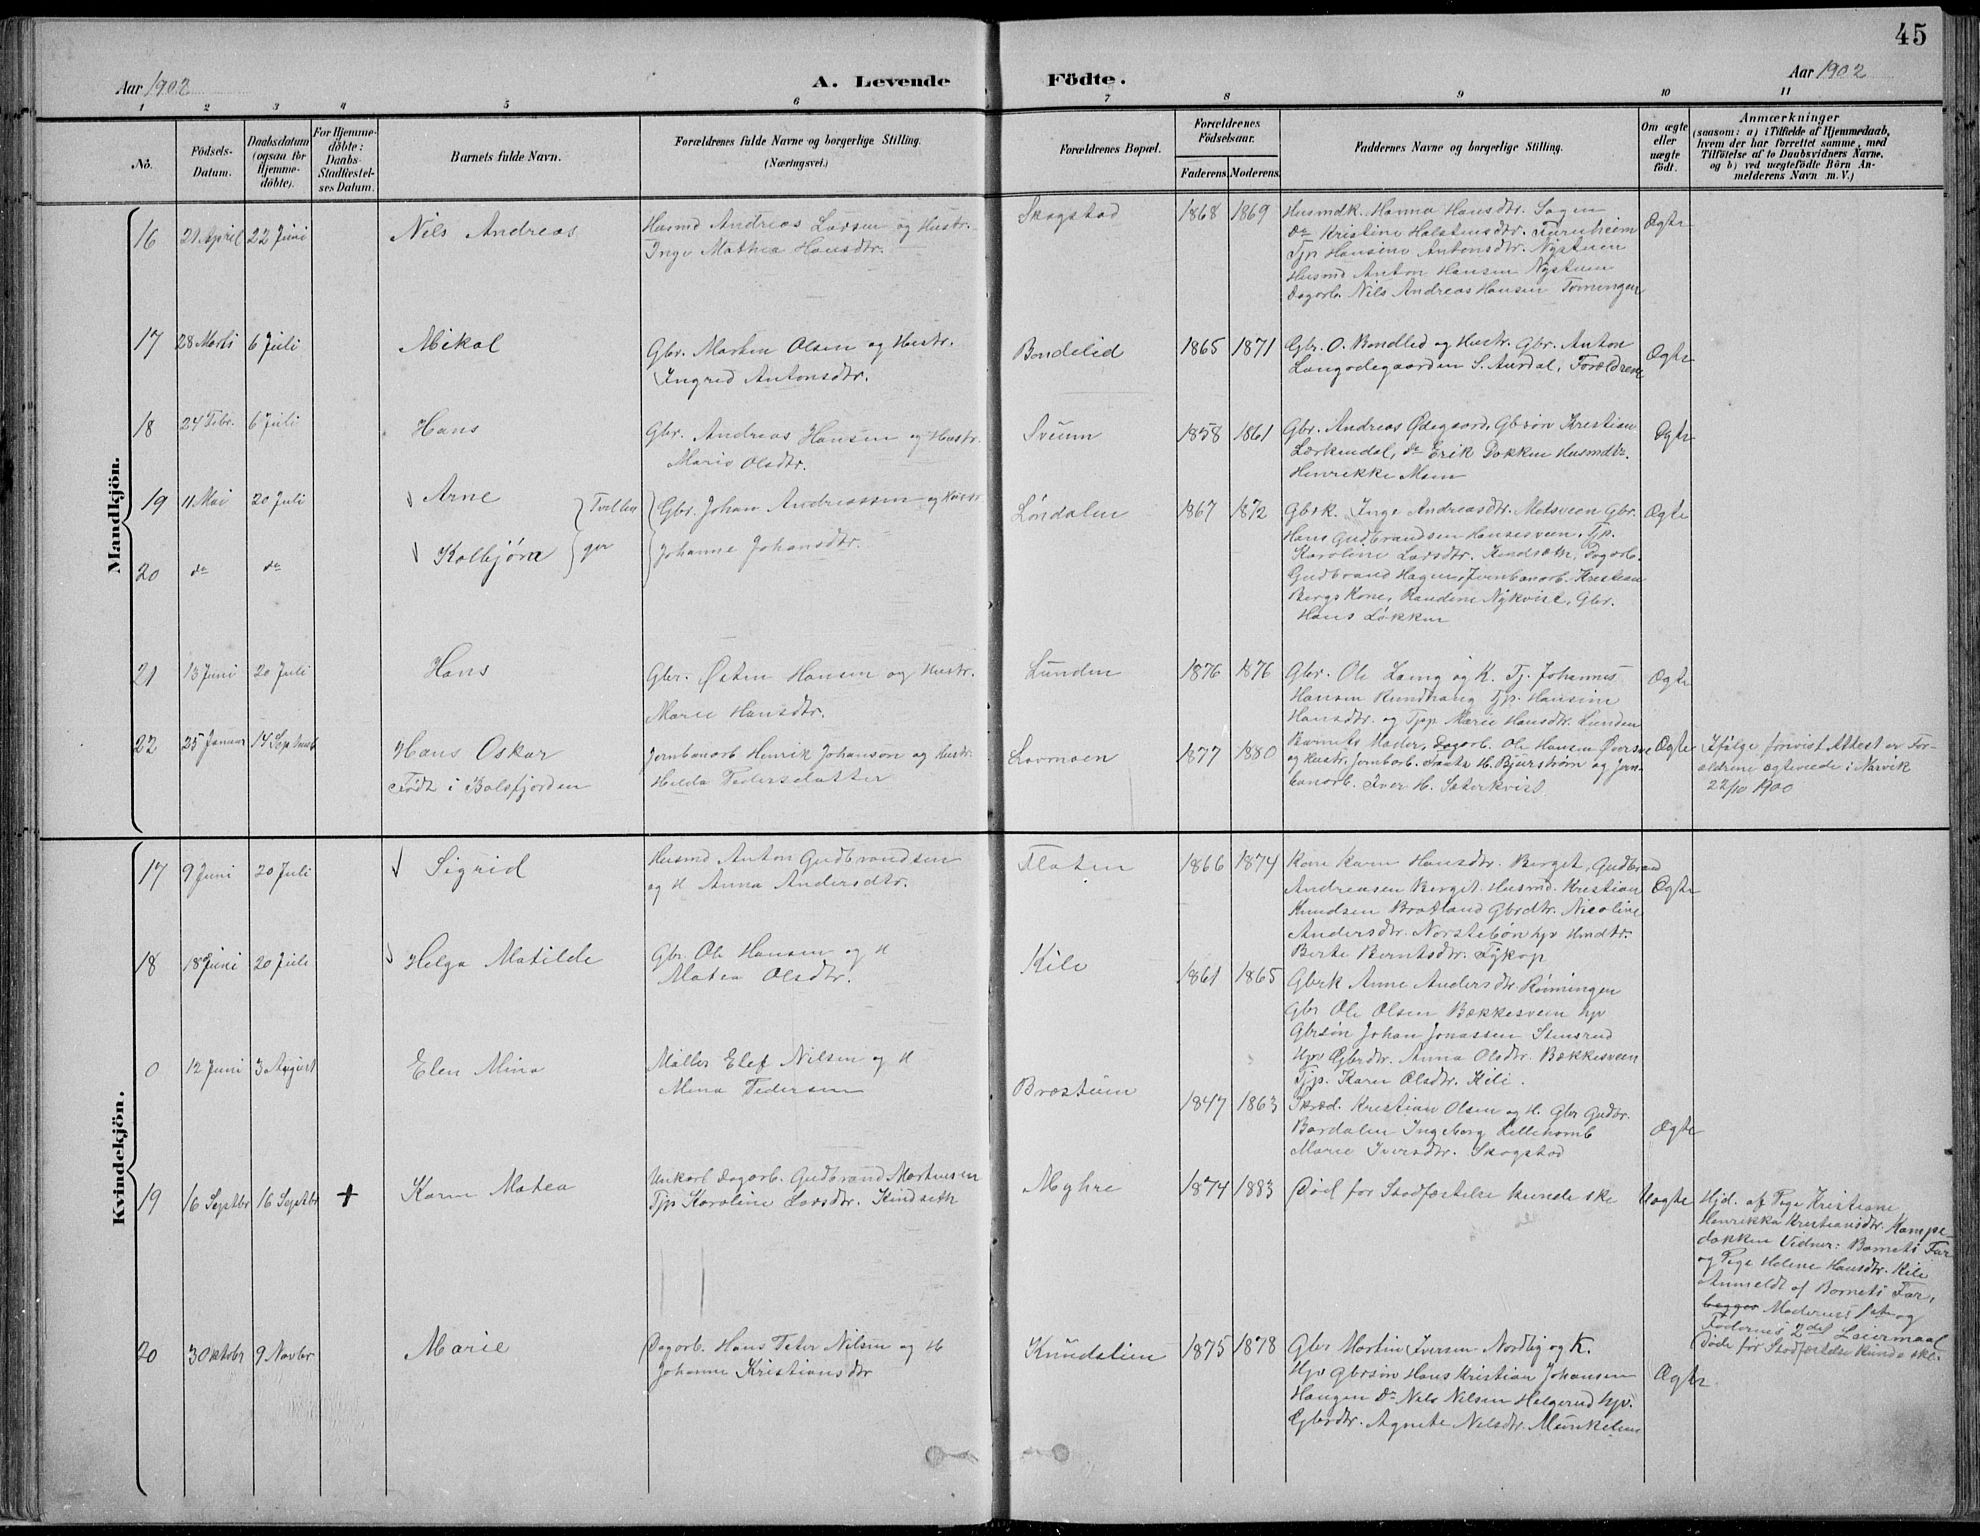 45
Aar 1902 A. Levende Födte. Aar 1902
1 2 3 4 5 6 7 8 9 10 11
No.
Födsels-Datum.
Daabsdatum (ogsaa for Hjemme-döbte).
For Hjemme-döbte: Daabs-Stadfæstel-ses Datum.
Barnets fulde Navn.
Forældrenes fulde Navne og borgerlige Stilling.
(Næringsvei.)
Forældrenes Bopæl.
Forældrenes Födselsaar.
Faderens. Moderens.
Faddernes Navne og borgerlige Stilling.
Om ægte eller uægte födt.
Anmærkninger
(saasom: a) i Tilfælde af Hjemmedaab,
hvem der har forrettet samme, med
Tilföielse af to Daabsvidners Navne,
og b) ved uægtefödte Börn An-
melderens Navn m. V.)
Mandkjön.
16 21 April 22 Juni Nils Andreas
Husmd Andreas Larsen og Hustr.
Inge Mathea Hansdtr.
Skogstad 1868 1869
Husmdk. Hanna Hansdtr. Sagen
do Kristine Halstensdtr.
Tjp Hansine Antonsdtr. Nystuen
Husmd Anton Hansen Nystuen
Dagarb. Nils Andreas Hansen Tømingen
Ægte
17 28 Marts 6 Juli Mikal
Gbr. Marten Olsen og Hustr.
Ingred Antonsdtr.
Bondelid 1865 1871
Gbr. O. Bondlid og Hustr. Gbr. Anton
Langødegaarden S. Aurdal, Forældrene
Ægte
18 24 Febr. 6 Juli Hans
Gbr. Andreas Hansen og Hustr.
Marie Olsdtr.
Sveum 1858 1861
Gbr. Andreas Ødegaard, Gbrsøn Kristian
Lærkendal, do Erik Dokken Husmdtr.
Henrikke Moen
Ægte
19 11 Mai 20 Juli Arne
20 do do Kolbjørn
Tvillin
ger
Gbr. Johan Andreassen og Hustr
Johanne Johansdtr.
Løndalen 1867 1872
Gbrk. Inge Andreasdtr. Metsveen Gbr.
Hans Gudbrandsen Hansesveen, Tjp.
Karoline Larsdtr. Kindseth, Dagarb.
Gudbrand Hagen, Jernbanarb. Kristian
Bergs Kone, Randine Nykvist, Gbr.
Hans Løkken
Ægte
21 13 Juni 20 Juli Hans
Gbr. Østen Hansen og Hustr.
Marie Hansdtr.
Lunden 1876 1876
Gbr. Ole Laing og K. Tj. Johannes
Hansen Rundhaug Tjp. Hansine
Hansdtr. og Tjp. Marie Hansdtr. Lunden
Ægte
22 25 Januar 14 Septemb Hans Oskar
Født i Balsfjorden
Jernbanarb Henrik Johanson og Hustr.
Hilda Pedersdatter
Lavmoen 1877 1880
Barnets Moder, Dagarb. Ole Hansen Øversve
og Hustr. Jernbarb. H. Bjurstrøm og Jern-
banarb. Iver H. Søterkvist.
Ægte
Ifølge forevist Attest er For-
ældrene ægteviede i Narvik
22/10 1900
Kvindekjön.
17 9 Juni 20 Juli Sigrid
Husmd Anton Gudbrandsen
og H Anna Andersdtr.
Floten 1866 1874
Kone Karen Hansdtr. Berget, Gudbrand
Andreasen Berget. Husmd. Kristian
Knudsen Bratland Gbrdtr. Nicoline
Andersdtr. Norstebøn hjv Hmdtr.
Berte Berntsdtr. Tykop
Ægte
18 18 Juni 20 Juli Helga Matilde
Gbr. Ole Hansen og H
Matea Olsdtr.
Kile 1861 1865
Gbrk Anne Andersdtr. Rønningen
Gbr Ole Olsen Bækkesveen hjv
Gbrsøn Johan Jonassen Stensrud
Hjv Gbrdtr. Anna Olsdtr. Bækkesveen
Tjp. Karen Olsdtr. Kile.
0 12 Juni 3 August Elen Mina
Møller Elef Nilsen og H
Mina Pedersen
Brastuen 1847 1863
Skræd. Kristian Olsen og H. Gbr Gudbr.
Bardalen Ingeborg Lillehomb
Marie Iversdtr. Skogstad
Ægte
19 16 Septbr 16 Septbr + Karen Matea
Unkarl Dagarb. Gudbrand Martensen
Tjp Karoline Larsdtr. Kindseth
Myhre 1874 1883
Død før Stadfæstelse kunde ske
Uægte
Hjd. af Pige Kristiane
Henrikka Kristiansdtr. Kampe-
dokken Vidner: Barnets Far
og Pige Helene Hansdtr. Kile
Anmeldt af Barnets Far,
Moderens 1ste og
Faderens 2det Leiermaal
Døde før Stadfæstelse kunde ske.
20 3 Oktobr 9 Novbr Marie
Dagarb. Hans Peter Nilsen og H
Johanne Kristiansdtr
Knudslien 1875 1878
Gbr Martin Iversen Nordlig og K.
Hjv Gbrsøn Hans Kristian Johansen
Haugen do Nils Nilsen Helgerud hjv.
Gbrdtr. Agnete Nilsdtr. Munkelien
Ægte